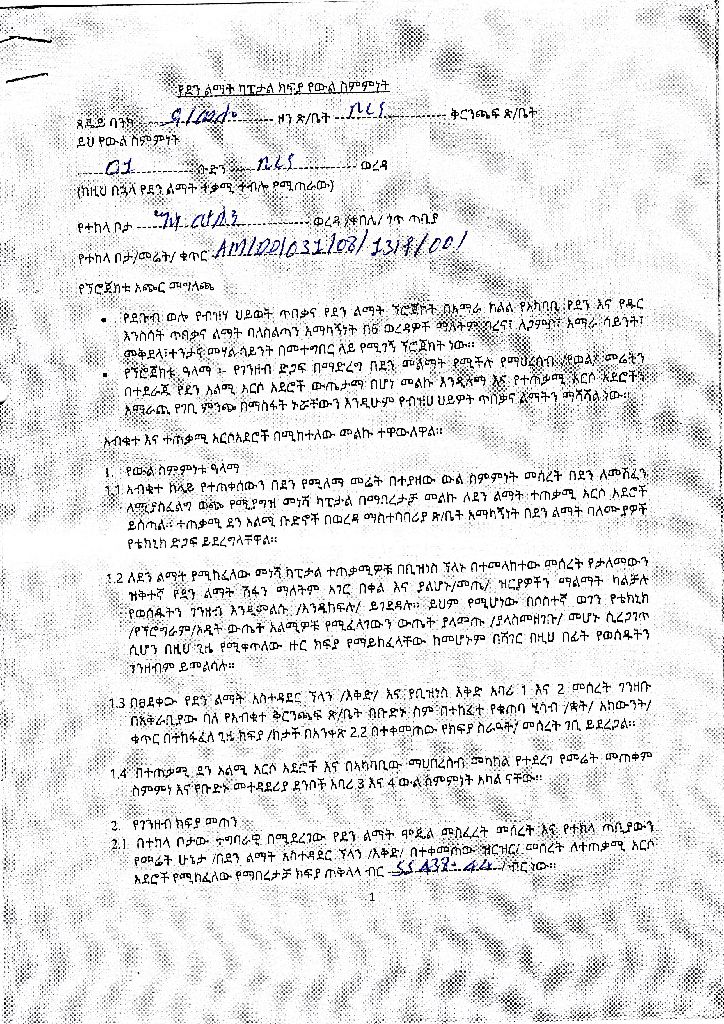 የደን ልማት ካፒታል ክፍያ የውል ስምምነት
ጸደይ ባንክ ደ/ወሎ ዞን ጽ/ቤት ቦረና ቅርንጫፍ ጽ/ቤት
ይህ የውል ስምምነት
01 ቡድን ቦረና ወረዳ
(ከዚህ በኋላ የደን ልማት ተቃሚ ተብሎ የሚጠራው)
የተከላ ቦታ ወረዳ /ቀበሌ/ ጎጥ ጣቢያ
የተከላ ቦታ/መሬት/ ቁጥር AM/DD/031/08/
የፕሮጀክቱ አጭር መግለጫ
• የደቡብ ወሎ የብዝሃ ህይወት ጥበቃና የደን ልማት ፕሮጀክት በአማራ ክልል የአካባቢ የደን እና የዱር
እንስሳት ጥበቃና ልማት ባለስልጣን አማካኝነት በ6 ወረዳዎች ማለትም ቦረና፣ ሌጋምቦ፣ አማራ ሳይንት፣
መቅደላ፣ተንታና መሃል ሳይንት በመተግበር ላይ የሚገኝ ፕሮጀክት ነው።
• የፕሮጀክቱ ዓላማ ፡- የገንዘብ ድጋፍ በማድረግ በደን መልማት የሚችሉ የማህረሰብ /የወል/ መሬትን
በተደራጁ የደን አልሚ አርሶ አደሮች ውጤታማ በሆነ መልኩ እንዲለማ እና የተጠቃሚ አርሶ አደሮችን
አማራጨ የገቢ ምንጭ በማስፋት ኑሯቸውን እንዲሁም የብዝሀ ህይዎት ጥበቃና ልማትን ማሻሻል ነው።
አብቁተ እና ተጠቃሚ አርሶአደሮች በሚከተለው መልኩ ተዋውለዋል።
1. የውል ስምምነቱ ዓላማ
1.1 አብቁተ ከላይ የተጠቀሰውን በደን የሚለማ መሬት በተያዘው ውል ስምምነት መሰረት በደን ለመሸፈን
ለሚያስፈልግ ወጭ የሚያግዝ መነሻ ካፒታል በማበረታቻ መልኩ ለደን ልማት ተጠቃሚ አርሶ አደሮች
ይሰጣል። ተጠቃሚ ደን አልሚ ቡድኖች በወረዳ ማስተባበሪያ ጽ/ቤት አማካኝነት በደን ልማት ባለሙያዎች
የቴክኒክ ድጋፍ ይደረግላቸዋል።
1.2 ለደን ልማት የሚከፈለው መነሻ ካፒታል ተጠቃሚዎቹ በቢዝነስ ፕላኑ በተመላከተው መሰረት የታለመውን
ዝቅተኛ የደን ልማት ሽፋን ማለትም አገር በቀል እና ያልሆኑ/መጤ/ ዝርያዎችን ማልማት ካልቻሉ
የወሰዱትን ገንዘብ እንዲመልሱ /እንዲከፍሉ/ ይገደዳሉ። ይህም የሚሆነው በሶስተኛ ወገን የቴክኒክ
/የፕሮግራም/አዲት ውጤት አልሚዎቹ የሚፈለገውን ውጤት ያላመጡ /ያላስመዘገቡ/ መሆኑ ሲረጋገጥ
ሲሆን በዚህ ጊዜ የሚቀጥለው ዙር ክፍያ የማይከፈላቸው ከመሆኑም በሻገር በዚህ በፊት የወሰዱትን
ገንዘብም ይመልሳሉ።
1.3 በፀደቀው የደን ልማት አስተዳደር ፕላን /እቅድ/ እና የቢዝነስ እቅድ አባሪ 1 እና 2 መሰረት ገንዘቡ
በአቅራቢያው ባለ የአብቁተ ቅርንጫፍ ጽ/ቤት በቡድኑ ስም በተከፈተ የቁጠባ ሂሳብ /ቋት/ አካውንት/
ቁጥር በተከፋፈለ ጊዜ ክፍያ /ከታች በአንቀጽ 2.2 በተቀመጠው የክፍያ ስራዓት/ መሰረት ገቢ ይደረጋል።
1.4 በተጠቃሚ ደን አልሚ አርሶ አደሮች እና በአካባቢው ማህበረሰብ መካከል የተደረገ የመሬት መጠቀም
ስምምነ እና የቡድኑ መተዳደሪያ ደንቦች አባሪ 3 እና 4 ውል ስምምነት አካል ናቸው።
2. የገንዘብ ክፍያ መጠን
2.1 በተከላ ቦታው ተግባራዊ በሚደረገው የደን ልማት ሞዴል መስፈረት መሰረት እና የተከላ ጣቢያውን
የመሬት ሁኔታ /በደን ልማት አስተዳደር ፕላን /እቅድ/ በተቀመጠው ዝርዝር/ መሰረት ለተጠቃሚ አርሶ
አደሮች የሚከፈለው የማበረታቻ ክፍያ ጠቅላላ ብር /ብር ነው።
1